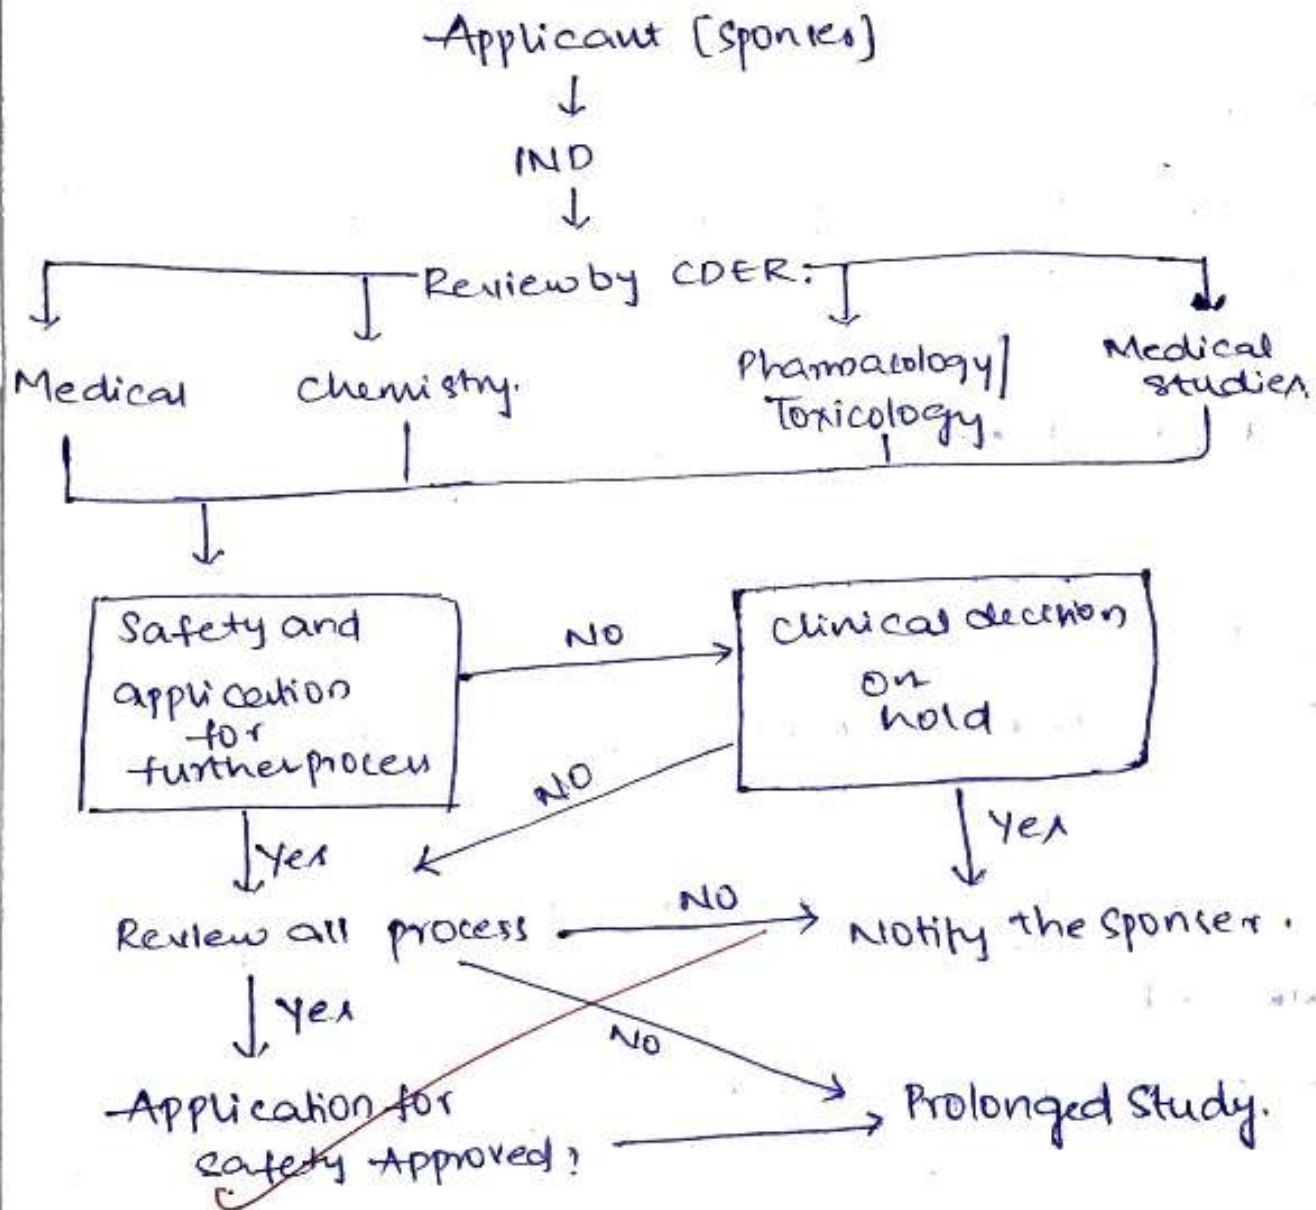 Applicant [Sponser]
IND
Review by CDER:
Medical
Chemistry.
Pharmacology/
Toxicology.
Medical
studies
Safety and
application
for
further process
NO
Clinical decision
on
hold
NO
Yes
Yes
Review all process
NO
Notify the sponser.
Yes
NO
Application for
safety Approved?
Prolonged Study.